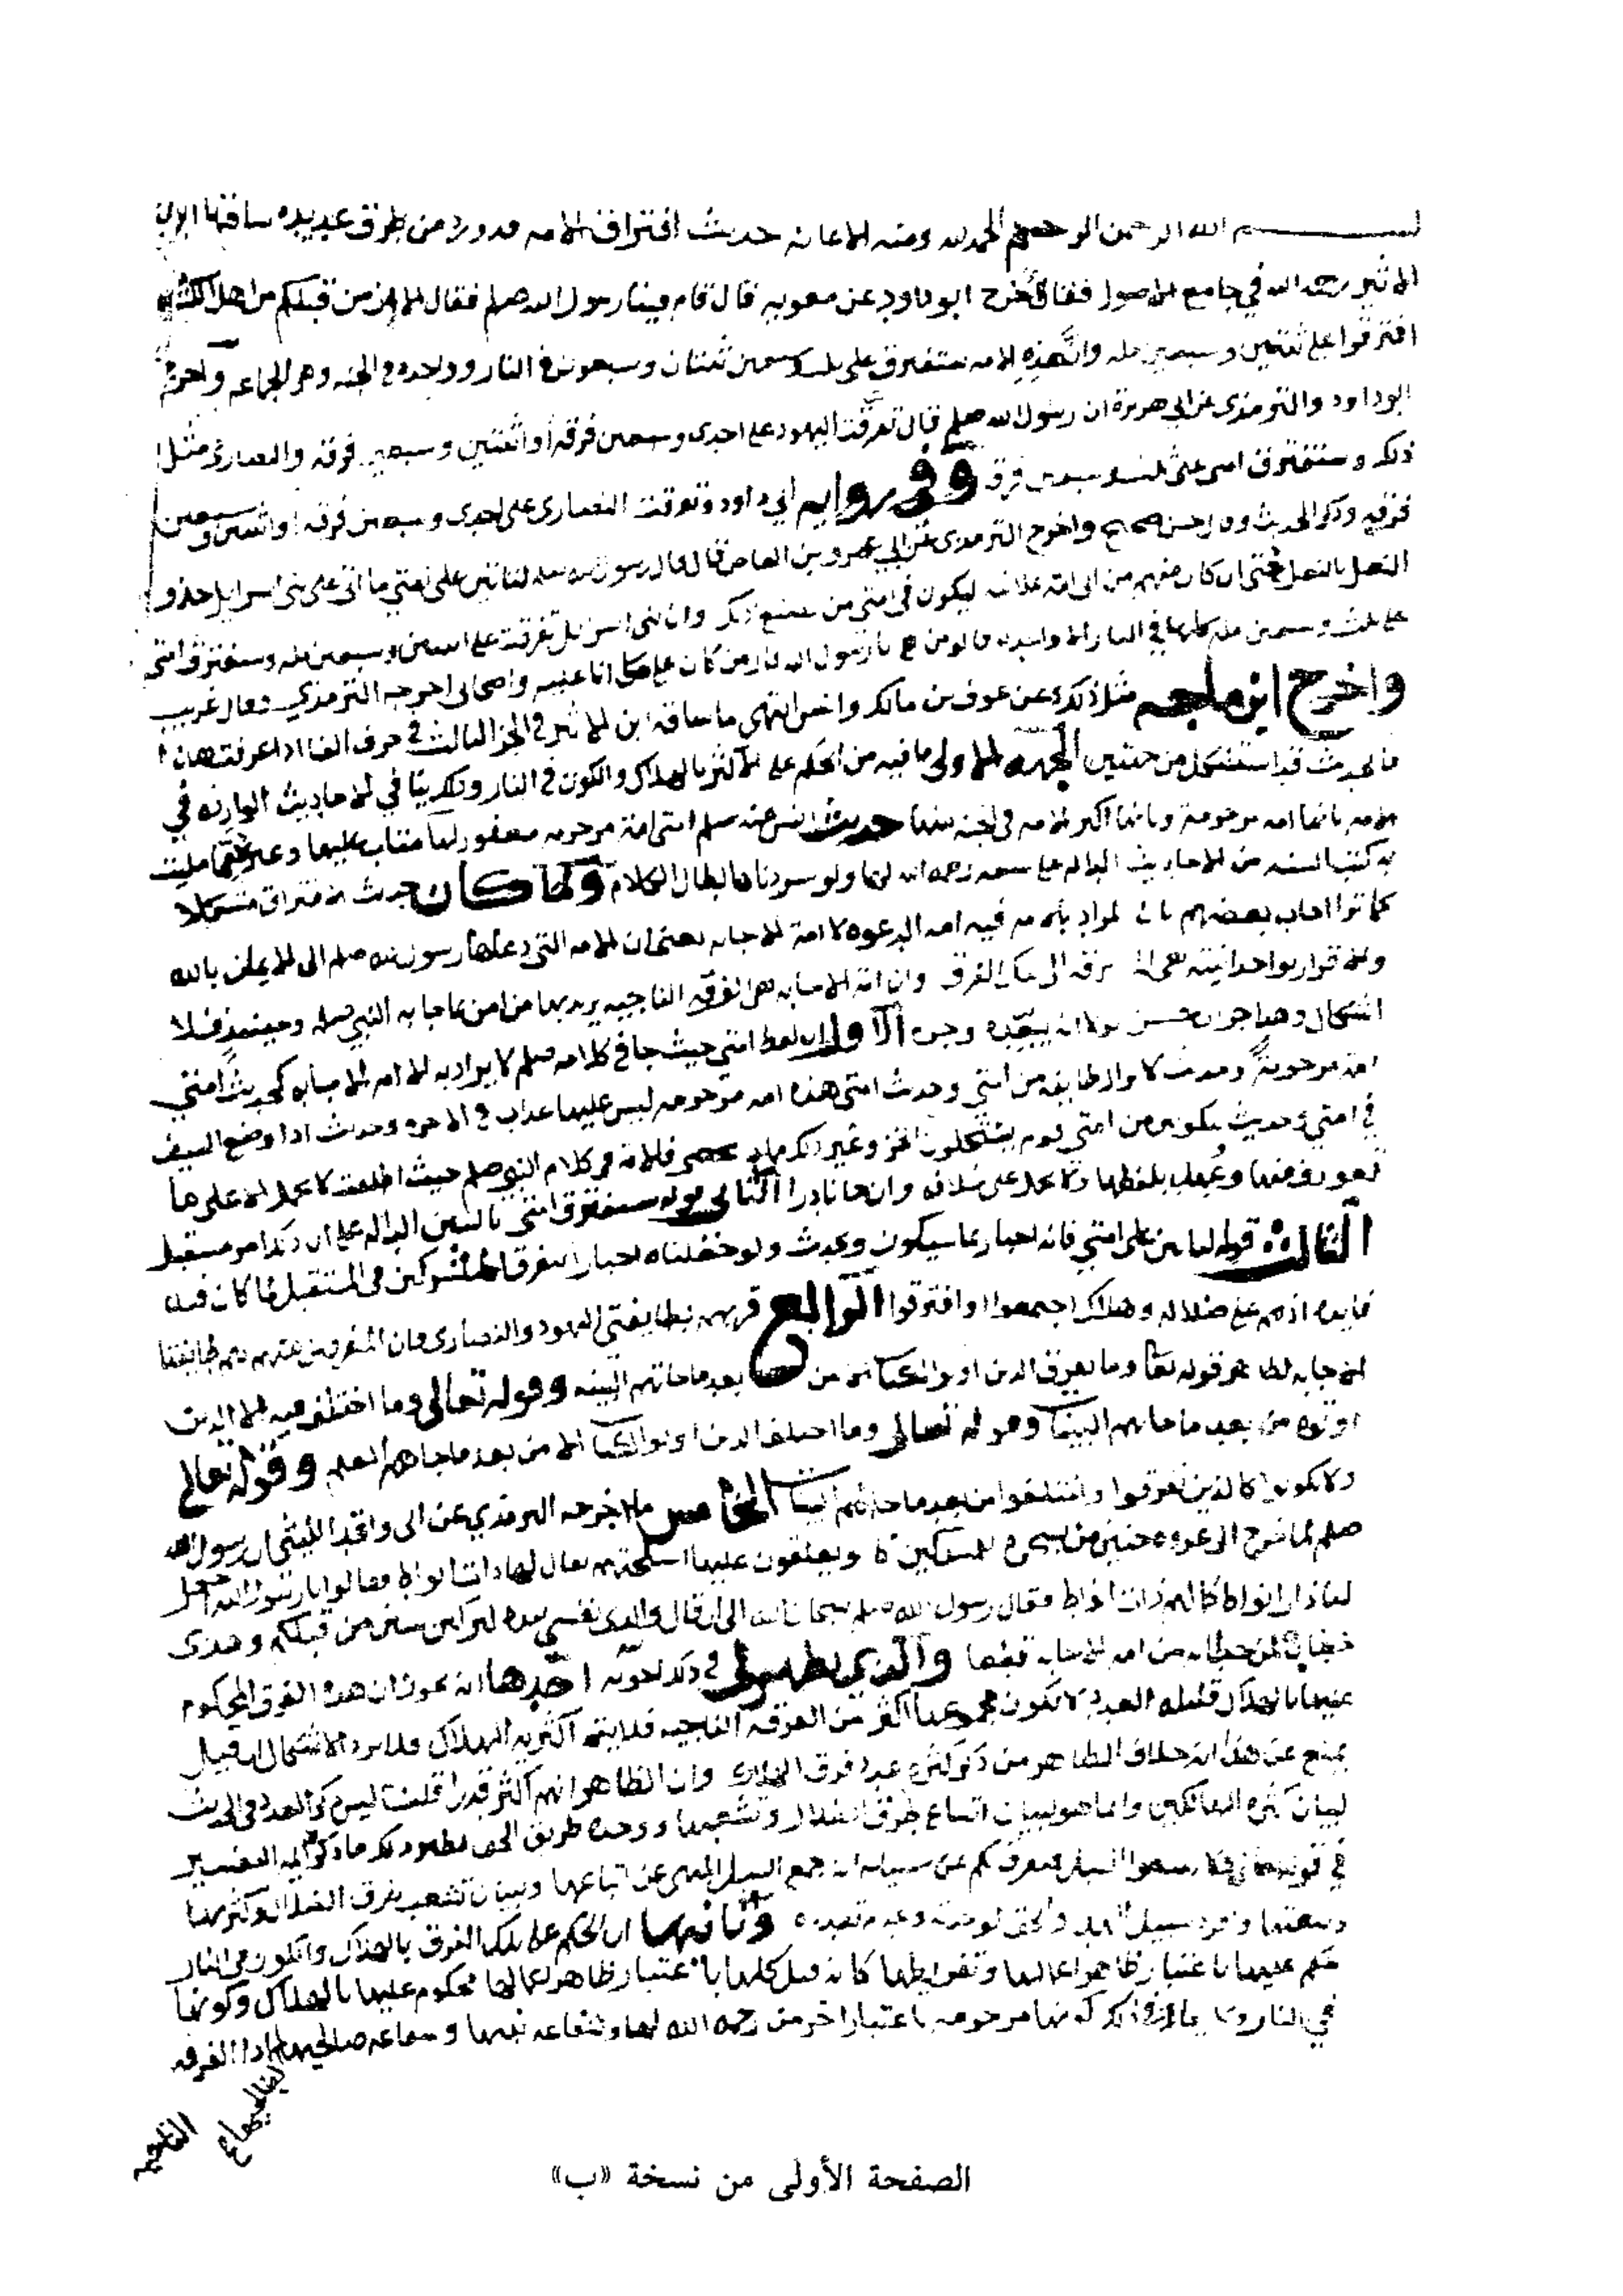 بسم الله الرحمن الرحيم الحمد لله ومنه الاعانه حديث افتراق الامه قد ورد من طرق عديده ساقها ابن
الاثير رحمه الله في جامع الاصول فقال اخرج ابو داود عن معويه قال قام فينا رسول الله صلم فقال الا ان من قبلكم من اهل الكتاب
افترقوا على ثنتين وسبعين مله وان هذه الامه ستفترق على ثلث وسبعين ثنتان وسبعون في النار وواحده في الجنه وهي الجماعه واخرج
ابو داود والترمذي عن ابي هريرة ان رسول الله صلم قال تفرقت اليهود على احدى وسبعين فرقه او اثنتين وسبعين فرقه والنصارى مثل
ذلك وستفترق امتي على ثلث وسبعين فرقه وفي روايه ابي داود وتفرقت النصارى على احدى وسبعين فرقه او اثنتين وسبعين
فرقه وذكر الحديث وقال حسن صحيح واخرج الترمذي عن ابن عمرو بن العاص قال قال رسول الله صلم لياتين على امتي ما اتى على بني اسرايل حذو
النعل بالنعل حتى ان كان منهم من اتى امه علانيه ليكون في امتي من يصنع ذلك وان بني اسرايل تفرقت على اثنتين وسبعين مله وستفترق امتي
على ثلث وسبعين مله كلها في النار الا واحده قالوا من هي يا رسول الله قال من كان على مثل ما انا عليه واصحابي اخرجه الترمذي وقال غريب
واخرج ابن ماجه مثل ذلك عن عوف بن مالك وانس انتهى ما ساقه ابن الاثير في الجز الثالث في حرف الفا اذا عرفت هذا
فالحديث قد استشكل من جهتين الجهه الاولى ما فيه من الحكم على الاكثر بالهلاك والكون في النار وذلك ينافي الاحاديث الوارده في
الامه بانها امه مرحومة وبانها اكثر الامه في الجنه منها حديث انس عنه صلم امتي امة مرحومه مغفور لها متاب عليها وغيره مما مليت
به كتب السنه من الاحاديث الداله على سعه رحمه الله لها ولو سردناها لطال الكلام ولما كان حديث الافتراق مشكلا
كما ترا اجاب بعضهم بان المراد بالامه فيه امه الدعوه لا امة الاجابه بمعنى ان الامه التي دعاها رسول الله صلم الى الايمان بالله
والاقرار بواحدانيته هي المفترقه الى تلك الفرق وان امة الاجابه هي الفرقه الناجيه يريد بها من امن بما جا به النبي صلم وحينيذ فلا
اشكال وهذا جواب حسن لولا انه يبعده وجوه الاول ان لفظ امتي حيث جا في كلامه صلم لا يراد به الا امه الاجابه كحديث امتي
امة مرحومة وحديث لا تزال طايفه من امتي وحديث امتي هذه امه مرحومه ليس عليها عذاب في الاخره وحديث اذا وضع السيف
في امتي وحديث ليكونن من امتي قوم يستحلون الخز وغير ذلك مما لا يحصى فالامه في كلام النبي صلم حيث اطلقت لا تحمل الا على ما
تعورف منها وعهد بلفظها ولا تحمل على خلافه وان جا نادرا الثاني قوله ستفترق امتي بالسين الداله على ان ذلك امر مستقبل
الثالث قوله لياتين على امتي فانه اخبار بما سيكون ويحدث ولو جعلناه اخبارا بتفرق المشركين في المستقبل لما كان فيه
فايده اذ هم على ضلاله وهلاك اجتمعوا او افترقوا الرابع قرنهم بطايفتي اليهود والنصارى فان المفترقين منهم هم طايفتا
الاجابه لظاهر قوله تعا وما تفرق الذين اوتوا الكتاب الا من بعد ما جاتهم البينه وقوله تعالى وما اختلف فيه الا الذين
اوتوه من بعد ما جاتهم البينات وقوله تعالى وما اختلف الذين اوتوا الكتاب الا من بعد ما جاهم العلم وقوله تعالى
ولا تكونوا كالذين تفرقوا واختلفوا من بعد ما جاهم البينات الخامس ما اخرجه الترمذي عن ابي واقد الليثي ان رسول الله
صلم لما خرج الى غزوه حنين مر بشجره للمشركين كانوا يعلقون عليها اسلحتهم يقال لها ذات انواط فقالوا يا رسول الله اجعل
لنا ذات انواط كما لهم ذات انواط فقال رسول الله صلم سبحان الله الى ان قال والذي نفسي بيده لتركبن سنن من قبلكم وهذا
خطاب لمن خطابه من امه الاجابه قطعا والذي يظهر لي في ذلك اجوبه احدها انه يجوز ان هذه الفرق المحكوم
عليها بالهلاك قليله العدد لا يكون مجموعها اكثر من الفرقه الناجيه فلا يتم اكثريه الهلاك فلا يرد الاشكال ان قيل
يمنع عن هذا انه خلاف الظاهر من ذكر كثره عدد فرق الهلاك وان الظاهر انهم اكثر قدرا قلت ليس ذكر العدد في الحديث
لبيان كثره الهالكين وانما هو لبيان اتساع طرق الضلال وتشعبها ووحده طريق الحق نظير ذلك ما ذكره ايمه التفسير
في قوله تعالى ولا تتبعوا السبل فتفرق بكم عن سبيله انه جمع السبل المنهي عن اتباعها وبيان تشعب فرق الضلال وكثرتها
وسعتها وافرد سبيل الهدى والحق لوحدته وعدم تعدده وثانيها ان الحكم على تلك الفرق بالهلاك والكون في النار
حكم عليها باعتبار ظاهر اعمالها وتفريطها كانه قيل كلها باعتبار ظاهر اعمالها محكوم عليها بالهلاك وكونها
في النار ولا ينافي ذلك كونها مرحومه باعتبار اخر من رحمه الله لها وشفاعه نبيها وشفاعه صالحيها
الناجيه
الصفحة الأولى من نسخة «ب»